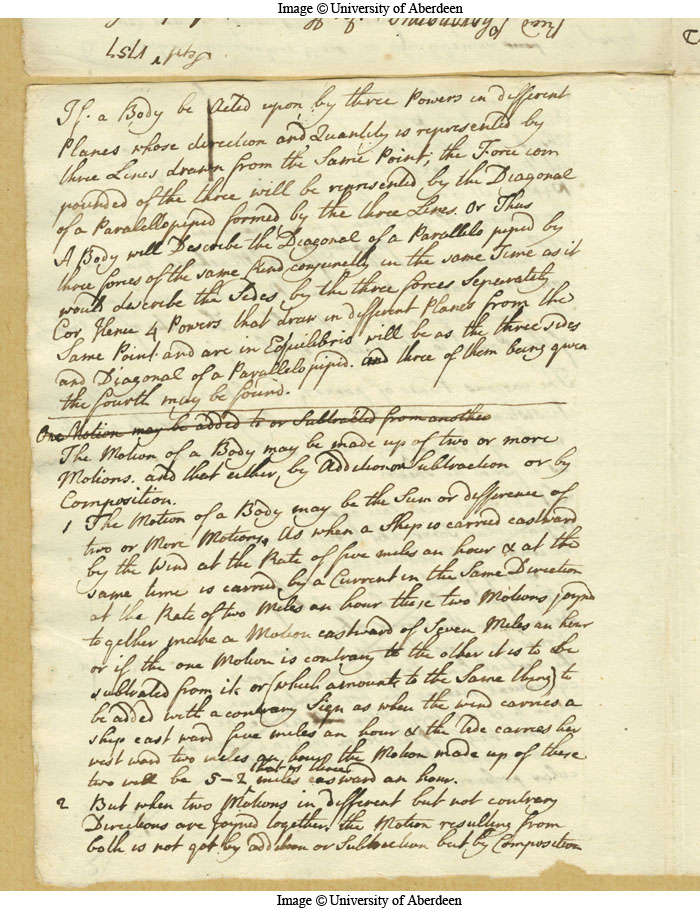 Image © University of Aberdeen
1757
If. a Body be Acted upon by three Powers in different
Planes whose direction and Quantity is represented by
three Lines drawn from the Same Point, the Force com
pounded of the three will be represented by the Diagonal
of a Paralellopiped formed by the three Lines. Or Thus
A Body will Describe the Diagonal of a Parallelo piped by
three forces of the same kind conjunctly in the same Time as it
would describe the Sides by the three forces Seperately
Cor Hence 4 Powers that draw in different Planes from the
Same Point. and are in Equilibrio will be as the three sides
and Diagonal of a Parallelopiped. and three of them being given
the fourth may be found.
One Motion may be added to or Subtracted from another
The Motion of a Body may be made up of two or more
Motions. and that either by Addition or Subtraction or by
Composition.
1 The Motion of a Body may be the Sum or difference of
two or More Motions. As when a Ship is carried eastward
by the Wind at the Rate of five miles an hour & at the
same time is carried by a Current in the Same Direction
at the Rate of two Miles an hour these two Motions joynd
together make a Motion eastward of Seven Miles an hour
or if the one Motion is contrary to the other it is to be
subtrated from it or (which amounts to the Same thing) to
be added with a contrary Sign as when the wind carries a
ship east ward five miles an hour & the Tide carries her
west ward two miles an hour the Motion made up of these
that is three
two will be 5-2 miles easward an hour.
2 But when two Motions in different but not contrary
Directions are joyned together. the Motion resulting from
both is not got by addition or Subtraction but by Composition
Image © University of Aberdeen